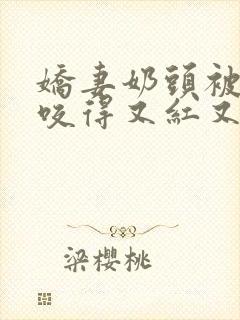 嬌妻奶頭被
咬得又紅又
梁櫻桃